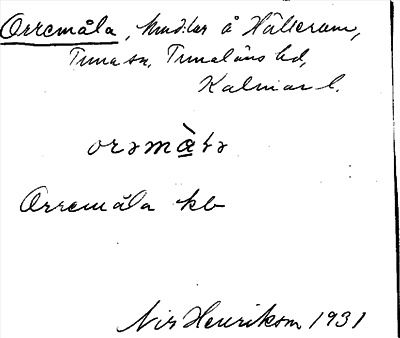 Orremåla, hmd:lar å Hällerum,
Tuna sn, Tunaläns hd,
Kalmar l.
orəmàɫə
Orremåla kb
Nir Henrikson 1931